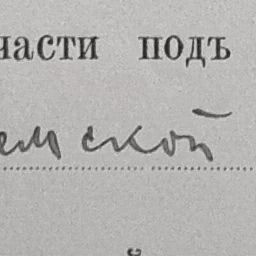 части подъ
емской